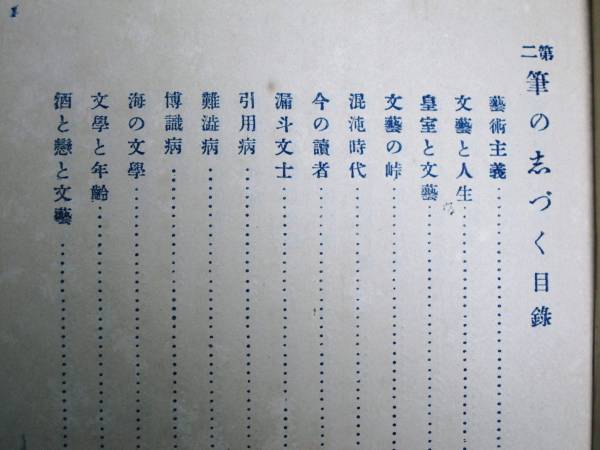 第二 筆の志づく目錄
藝術主義
文藝と人生
皇室と文藝
文藝の峠
混沌時代
今の讀者
漏斗文士
引用病
難澁病
博識病
海の文學
文學と年齡
酒と戀と文藝
1